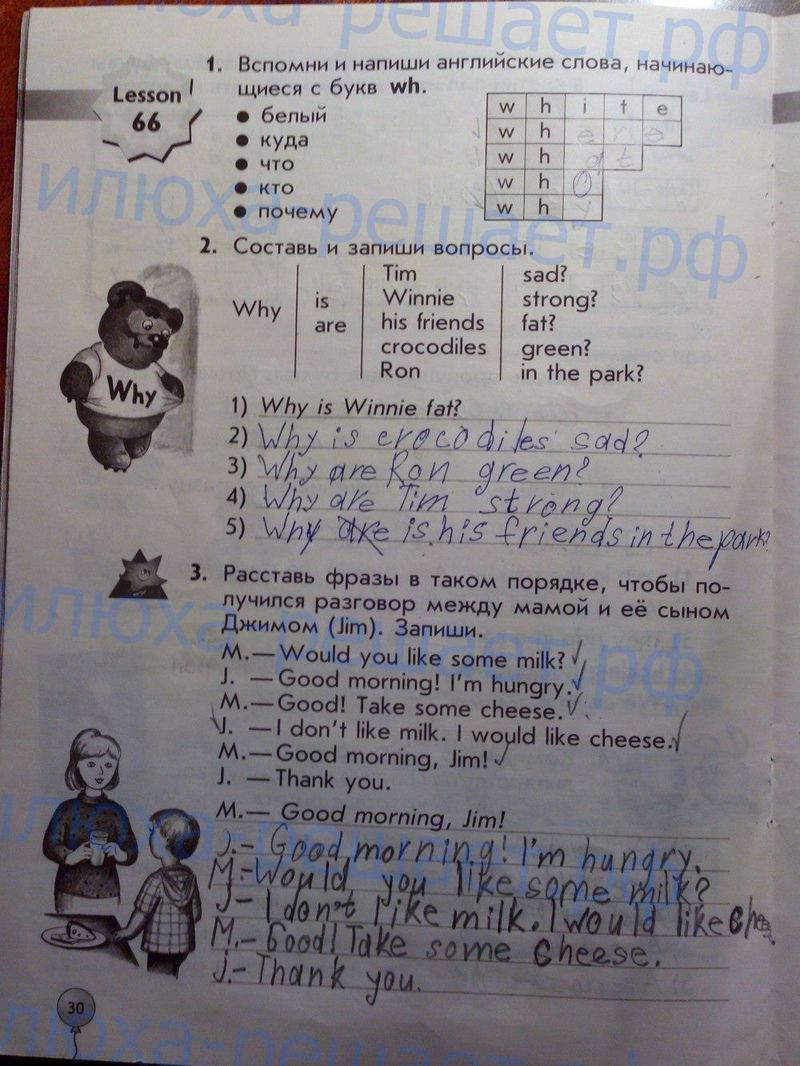 илюха-решает.рф
1. Вспомни и напиши английские слова, начинаю-
щиеся с букв wh.
Lesson
66
● белый
● куда
● что
● кто
● почему
w h i t e
w h e r e
w h a t
w h o
w h y
илюха-решает.рф
2. Составь и запиши вопросы.
Why
is
are
Tim
Winnie
his friends
crocodiles
Ron
sad?
strong?
fat?
green?
in the park?
Why
1) Why is Winnie fat?
2) Why is crocodiles sad?
3) Why are Ron green?
4) Why are Tim strong?
5) Why are is his friends in the park?
3. Расставь фразы в таком порядке, чтобы по-
лучился разговор между мамой и её сыном
Джимом (Jim). Запиши.
илюха-решает.рф
M.— Would you like some milk? √
J. — Good morning! I'm hungry. √
M.— Good! Take some cheese. √
J. — I don't like milk. I would like cheese. √
M.— Good morning, Jim! √
J. — Thank you.
M.— Good morning, Jim!
илюха-решает.рф
J.- Good morning! I'm hungry.
M.- Would you like some milk?
J- I don't like milk. I would like chee
M.- Good! Take some cheese.
J.- Thank you.
30
илюха-решает.рф